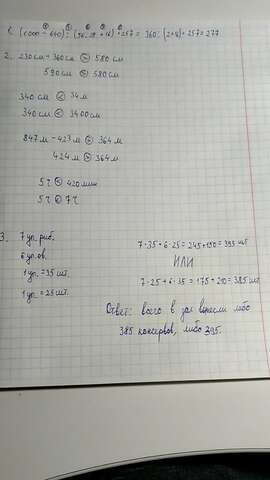 1. (1000 - 640) : (36 : 18 + 16) + 257 = 360 : (2+16) + 257 = 277
2. 230 см + 360 см > 580 см
590 см > 580 см
340 см < 34 м
340 см < 3400 см
847 м - 423 м > 364 м
424 м > 364 м
5 ч < 420 мин
5 ч < 7 ч
3. 7 уп. рыб.
6 уп. ов.
1 уп. = 35 шт.
1 уп. = 25 шт.
7·35 + 6·25 = 245 + 150 = 395 шт.
ИЛИ
7·25 + 6·35 = 175 + 210 = 385 шт.
Ответ: всего в зал вынесли либо
385 консервов, либо 395.